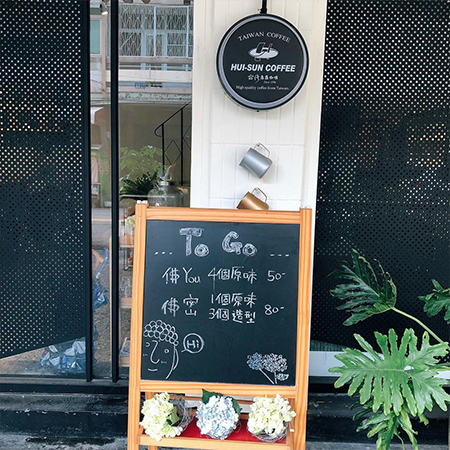 TAIWAN COFFEE
HUI-SUN COFFEE
High quality coffee from Taiwan.
To Go
佛You 4個原味 50-
佛密 1個原味
3個造型 80-
Hi